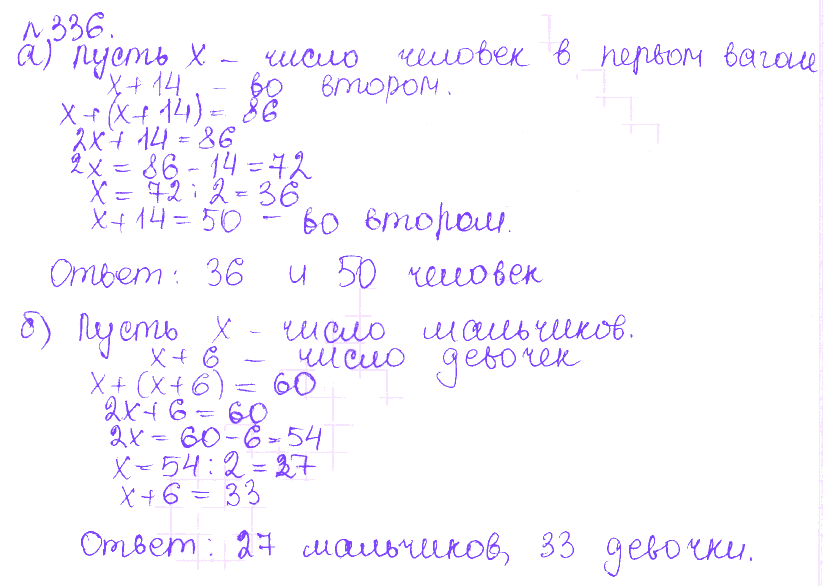 №336.
а) Пусть x – число человек в первом вагоне
x + 14 – во втором.
x + (x + 14) = 86
2x + 14 = 86
2x = 86 – 14 = 72
x = 72 : 2 = 36
x + 14 = 50 – во втором.
Ответ: 36 и 50 человек
б) Пусть x – число мальчиков.
x + 6 – число девочек
x + (x + 6) = 60
2x + 6 = 60
2x = 60 – 6 = 54
x = 54 : 2 = 27
x + 6 = 33
Ответ: 27 мальчиков, 33 девочки.